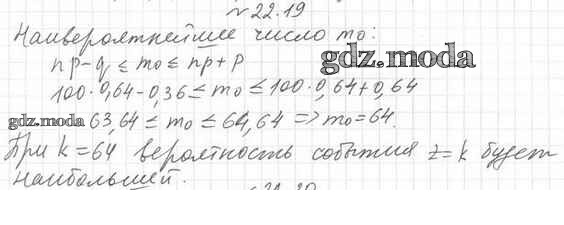 № 22.19
Наивероятнейшее число m₀:
np-q ≤ m₀ ≤ np+p
gdz.moda
100·0,64-0,36 ≤ m₀ ≤ 100·0,64+0,64
gdz.moda 63,64 ≤ m₀ ≤ 64,64 => m₀=64.
При k=64 вероятность события z=k будет
наибольшей.